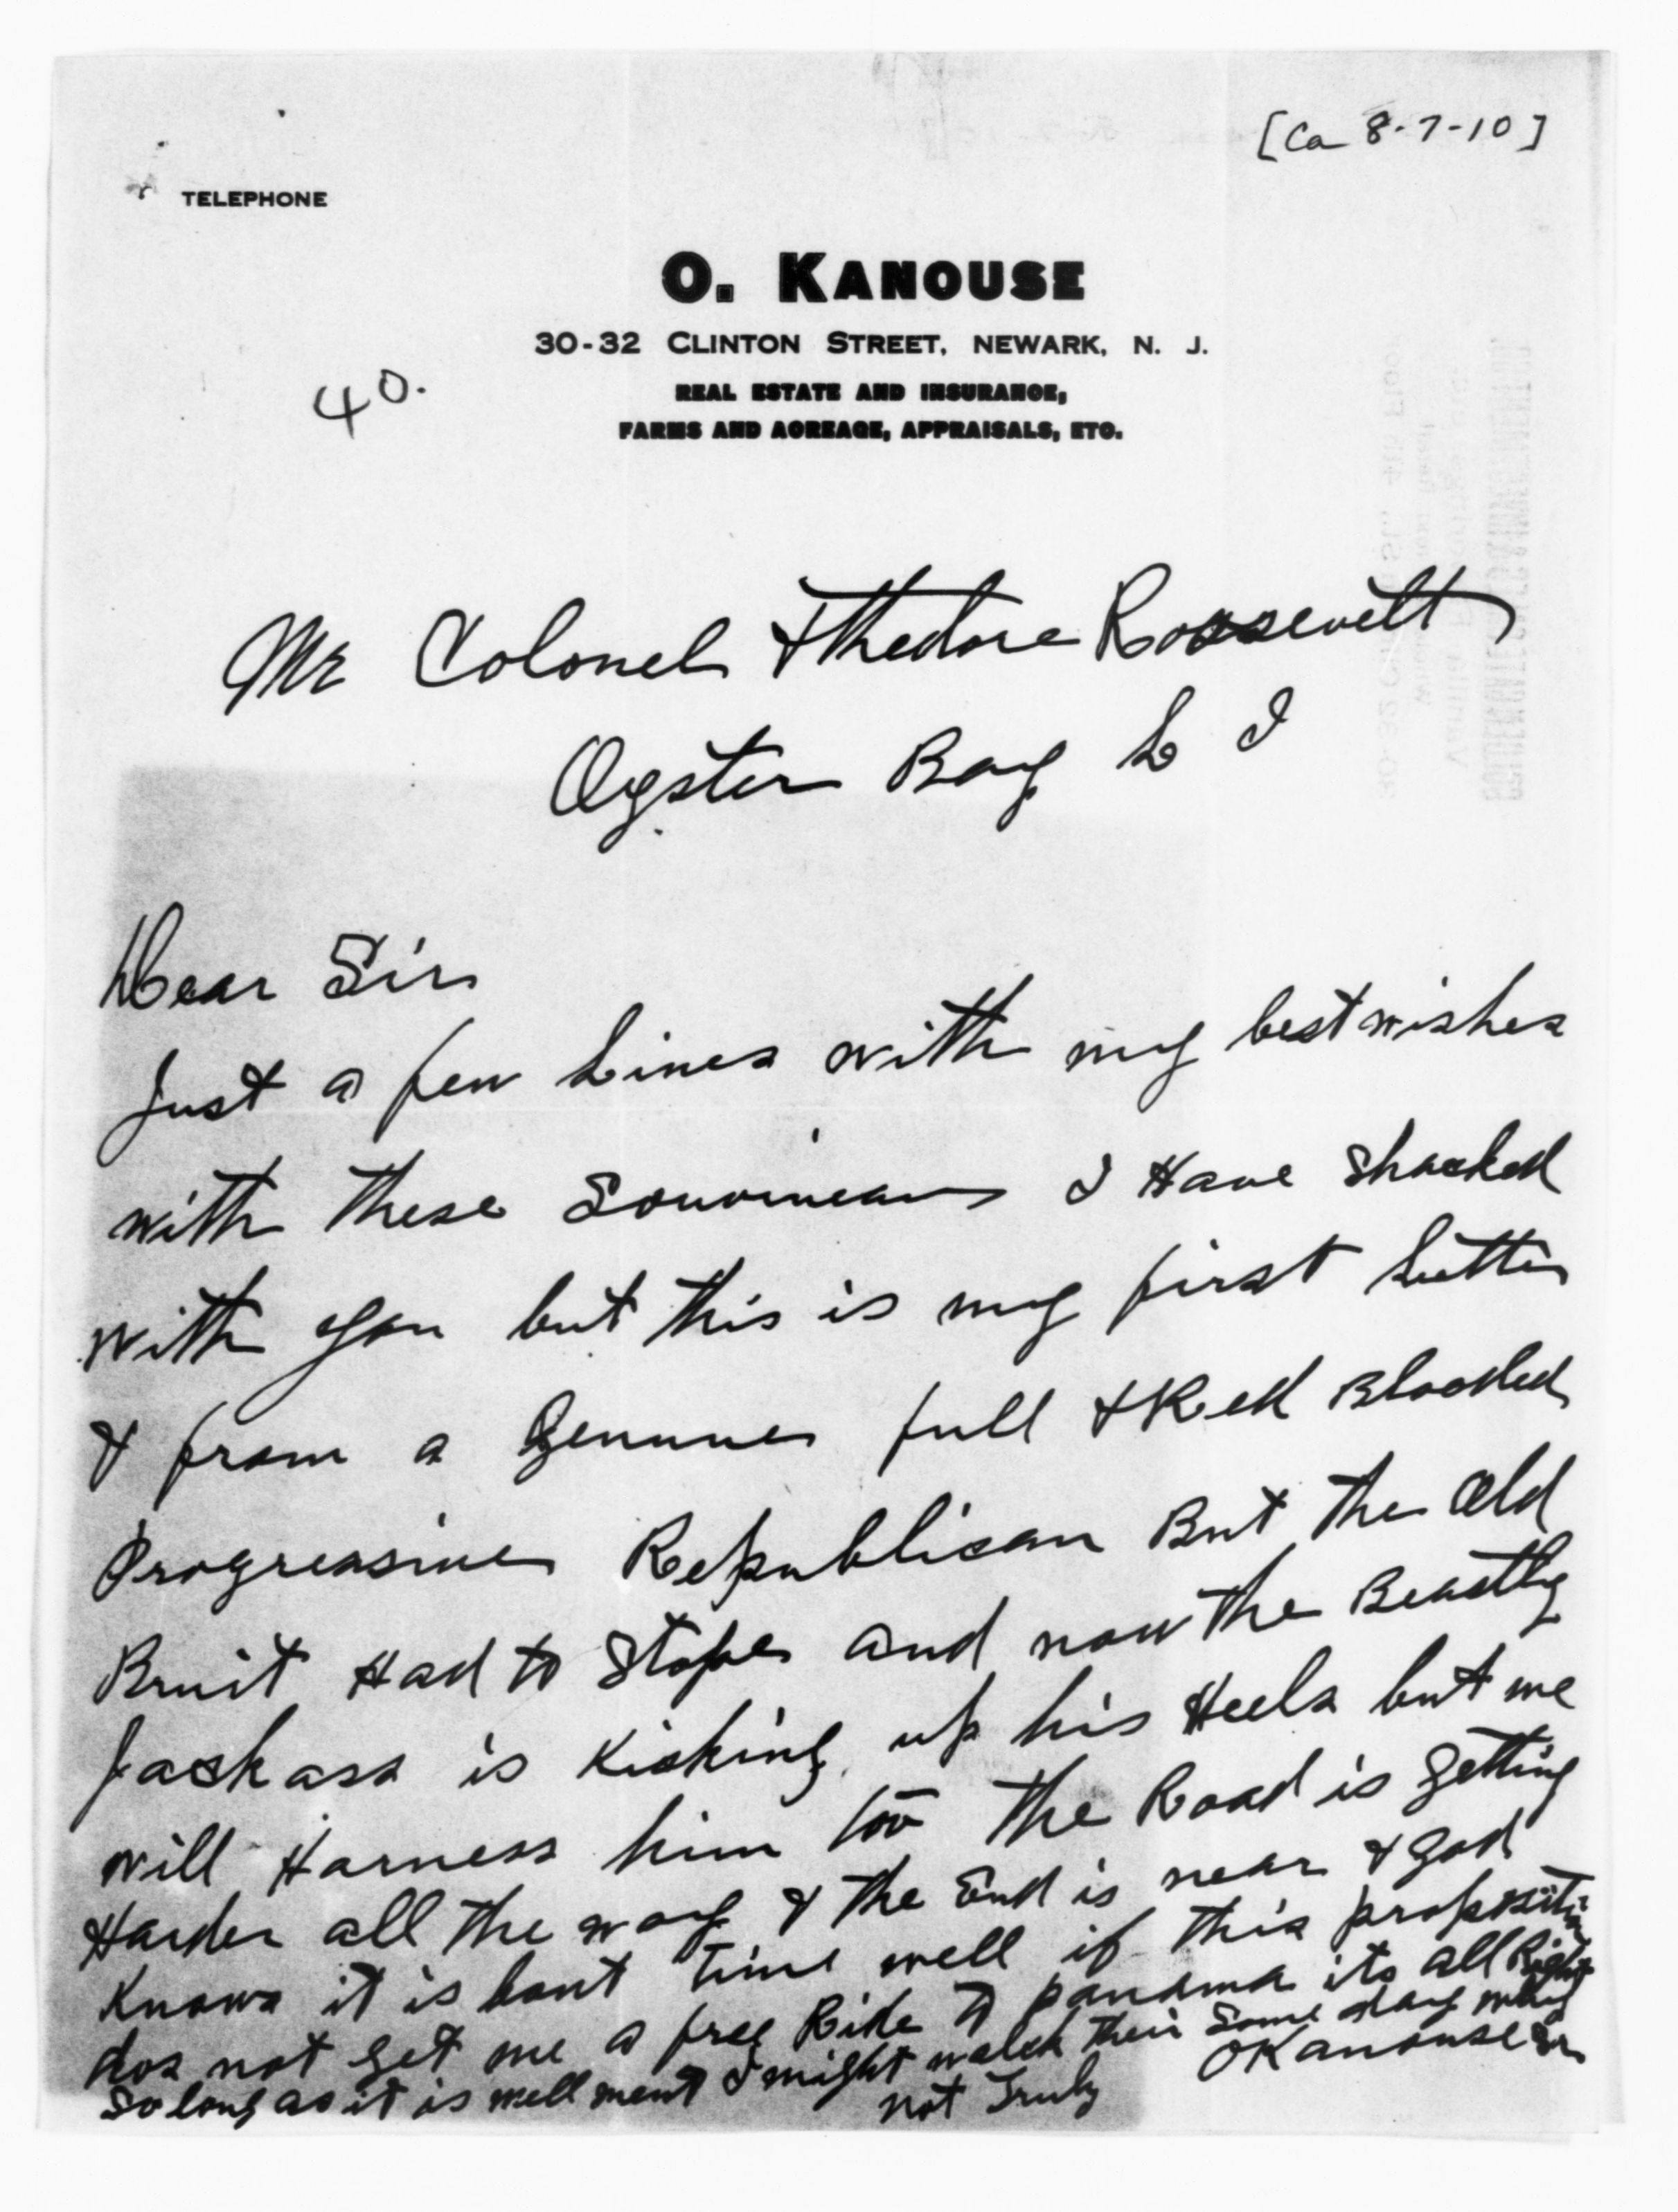 [Ca 8-7-10]
TELEPHONE
O. KANOUSE
30-32 CLINTON STREET, NEWARK, N. J.
40.
REAL ESTATE AND INSURANCE,
FARMS AND ACREAGE, APPRAISALS, ETC.
Mr Colonel Thedore Roosevelt
Oyster Bay L I
Dear Sir
Just a few Lines with my best wishes
with these I Have Shacked
with you but this is my first Letter
& from a Genuine full & Red Blooded
Progressive Republican But the Old
Bruit Had to Stope and now the Beastly
Jackass is Kicking up his Heels but we
will Harness him too the Road is getting
Harder all the way & the End is near & god
Knows it is bout time well if this proposition
dos not get me a free Ride to panama its all Right
So long as it is well ment I might walek their Some day why
not Truly OKanouse Sr